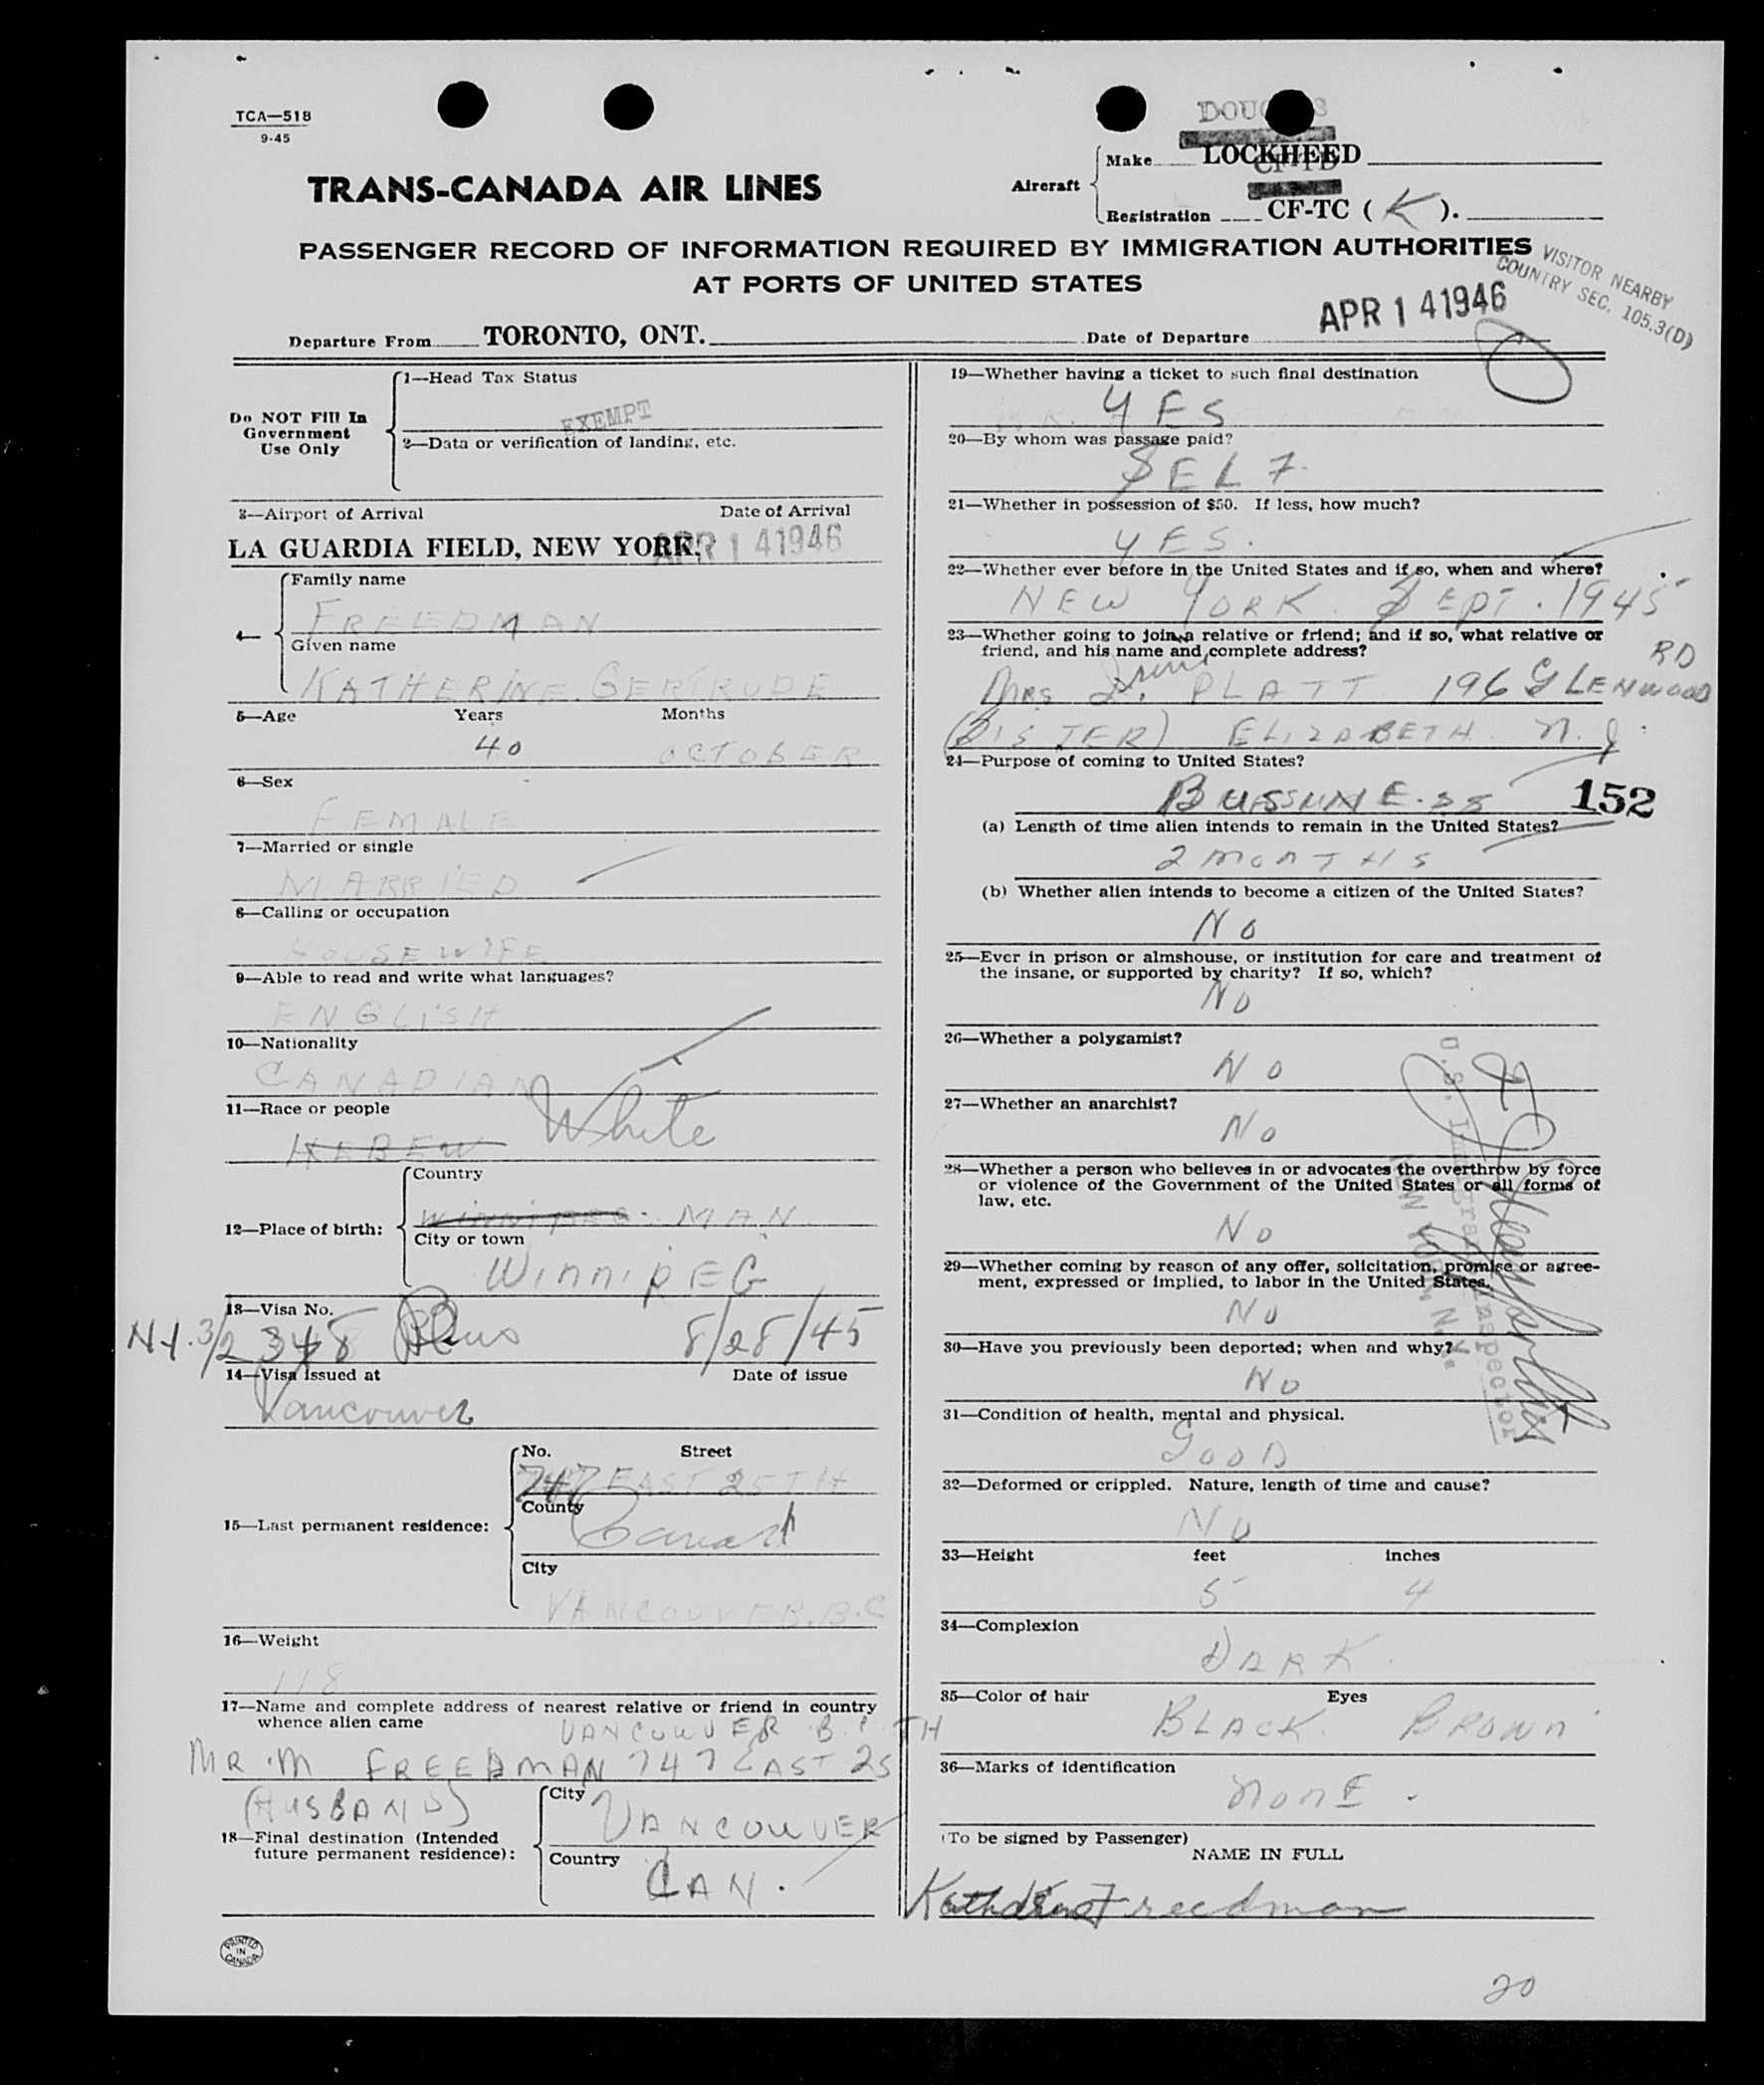 TCA—518
9-45
DOUGLAS
Aircraft
Make LOCKHEED
CF-TD
Registration CF-TC ( K ).
TRANS-CANADA AIR LINES
PASSENGER RECORD OF INFORMATION REQUIRED BY IMMIGRATION AUTHORITIES
AT PORTS OF UNITED STATES
VISITOR NEARBY
COUNTRY SEC. 105.3(D)
Departure From TORONTO, ONT. Date of Departure APR 14 1946
Do NOT Fill In
Government
Use Only
1—Head Tax Status
EXEMPT
2—Data or verification of landing, etc.
3—Airport of Arrival Date of Arrival
LA GUARDIA FIELD, NEW YORK. APR 14 1946
4—
Family name
FREEDMAN
Given name
KATHERINE. GERTRUDE
5—Age Years Months
40 OCTOBER
6—Sex
FEMALE
7—Married or single
MARRIED
8—Calling or occupation
HOUSEWIFE
9—Able to read and write what languages?
ENGLISH
10—Nationality
CANADIAN
11—Race or people
HEBEW White
12—Place of birth:
Country
WINNIPEG. MAN
City or town
WINNIPEG
13—Visa No.
8/28/45
14—Visa issued at Date of issue
Vancouver
15—Last permanent residence:
No. Street
747 EAST 25TH
County
Canada
City
VANCOUVER. B.C
16—Weight
118
17—Name and complete address of nearest relative or friend in country
whence alien came
VANCOUVER B.C.
MR. M FREEDMAN 747 EAST 25 TH
(HUSBAND)
18—Final destination (Intended
future permanent residence):
City
VANCOUVER
Country
CAN.
PRINTED
IN
CANADA
19—Whether having a ticket to such final destination
YES
20—By whom was passage paid?
SELF.
21—Whether in possession of $50. If less, how much?
YES.
22—Whether ever before in the United States and if so, when and where?
NEW YORK. SEPT. 1945
23—Whether going to join a relative or friend; and if so, what relative or
friend, and his name and complete address?
MRS I. PLATT 196 GLENWOOD RD
(SISTER) ELIZABETH N.J.
24—Purpose of coming to United States?
BUSSINE.SS 152
(a) Length of time alien intends to remain in the United States?
2 MONTHS
(b) Whether alien intends to become a citizen of the United States?
NO
25—Ever in prison or almshouse, or institution for care and treatment of
the insane, or supported by charity? If so, which?
NO
26—Whether a polygamist?
NO
27—Whether an anarchist?
NO
28—Whether a person who believes in or advocates the overthrow by force
or violence of the Government of the United States or all forms of
law, etc.
NO
29—Whether coming by reason of any offer, solicitation, promise or agree-
ment, expressed or implied, to labor in the United States.
NO
30—Have you previously been deported; when and why?
NO
U.S. Immigrant Inspector
NEW YORK N.Y.
31—Condition of health, mental and physical.
GOOD
32—Deformed or crippled. Nature, length of time and cause?
NO
33—Height feet inches
5 4
34—Complexion
DARK.
35—Color of hair Eyes
BLACK. BROWN
36—Marks of identification
NONE.
(To be signed by Passenger)
NAME IN FULL
Katherine Freedman
20